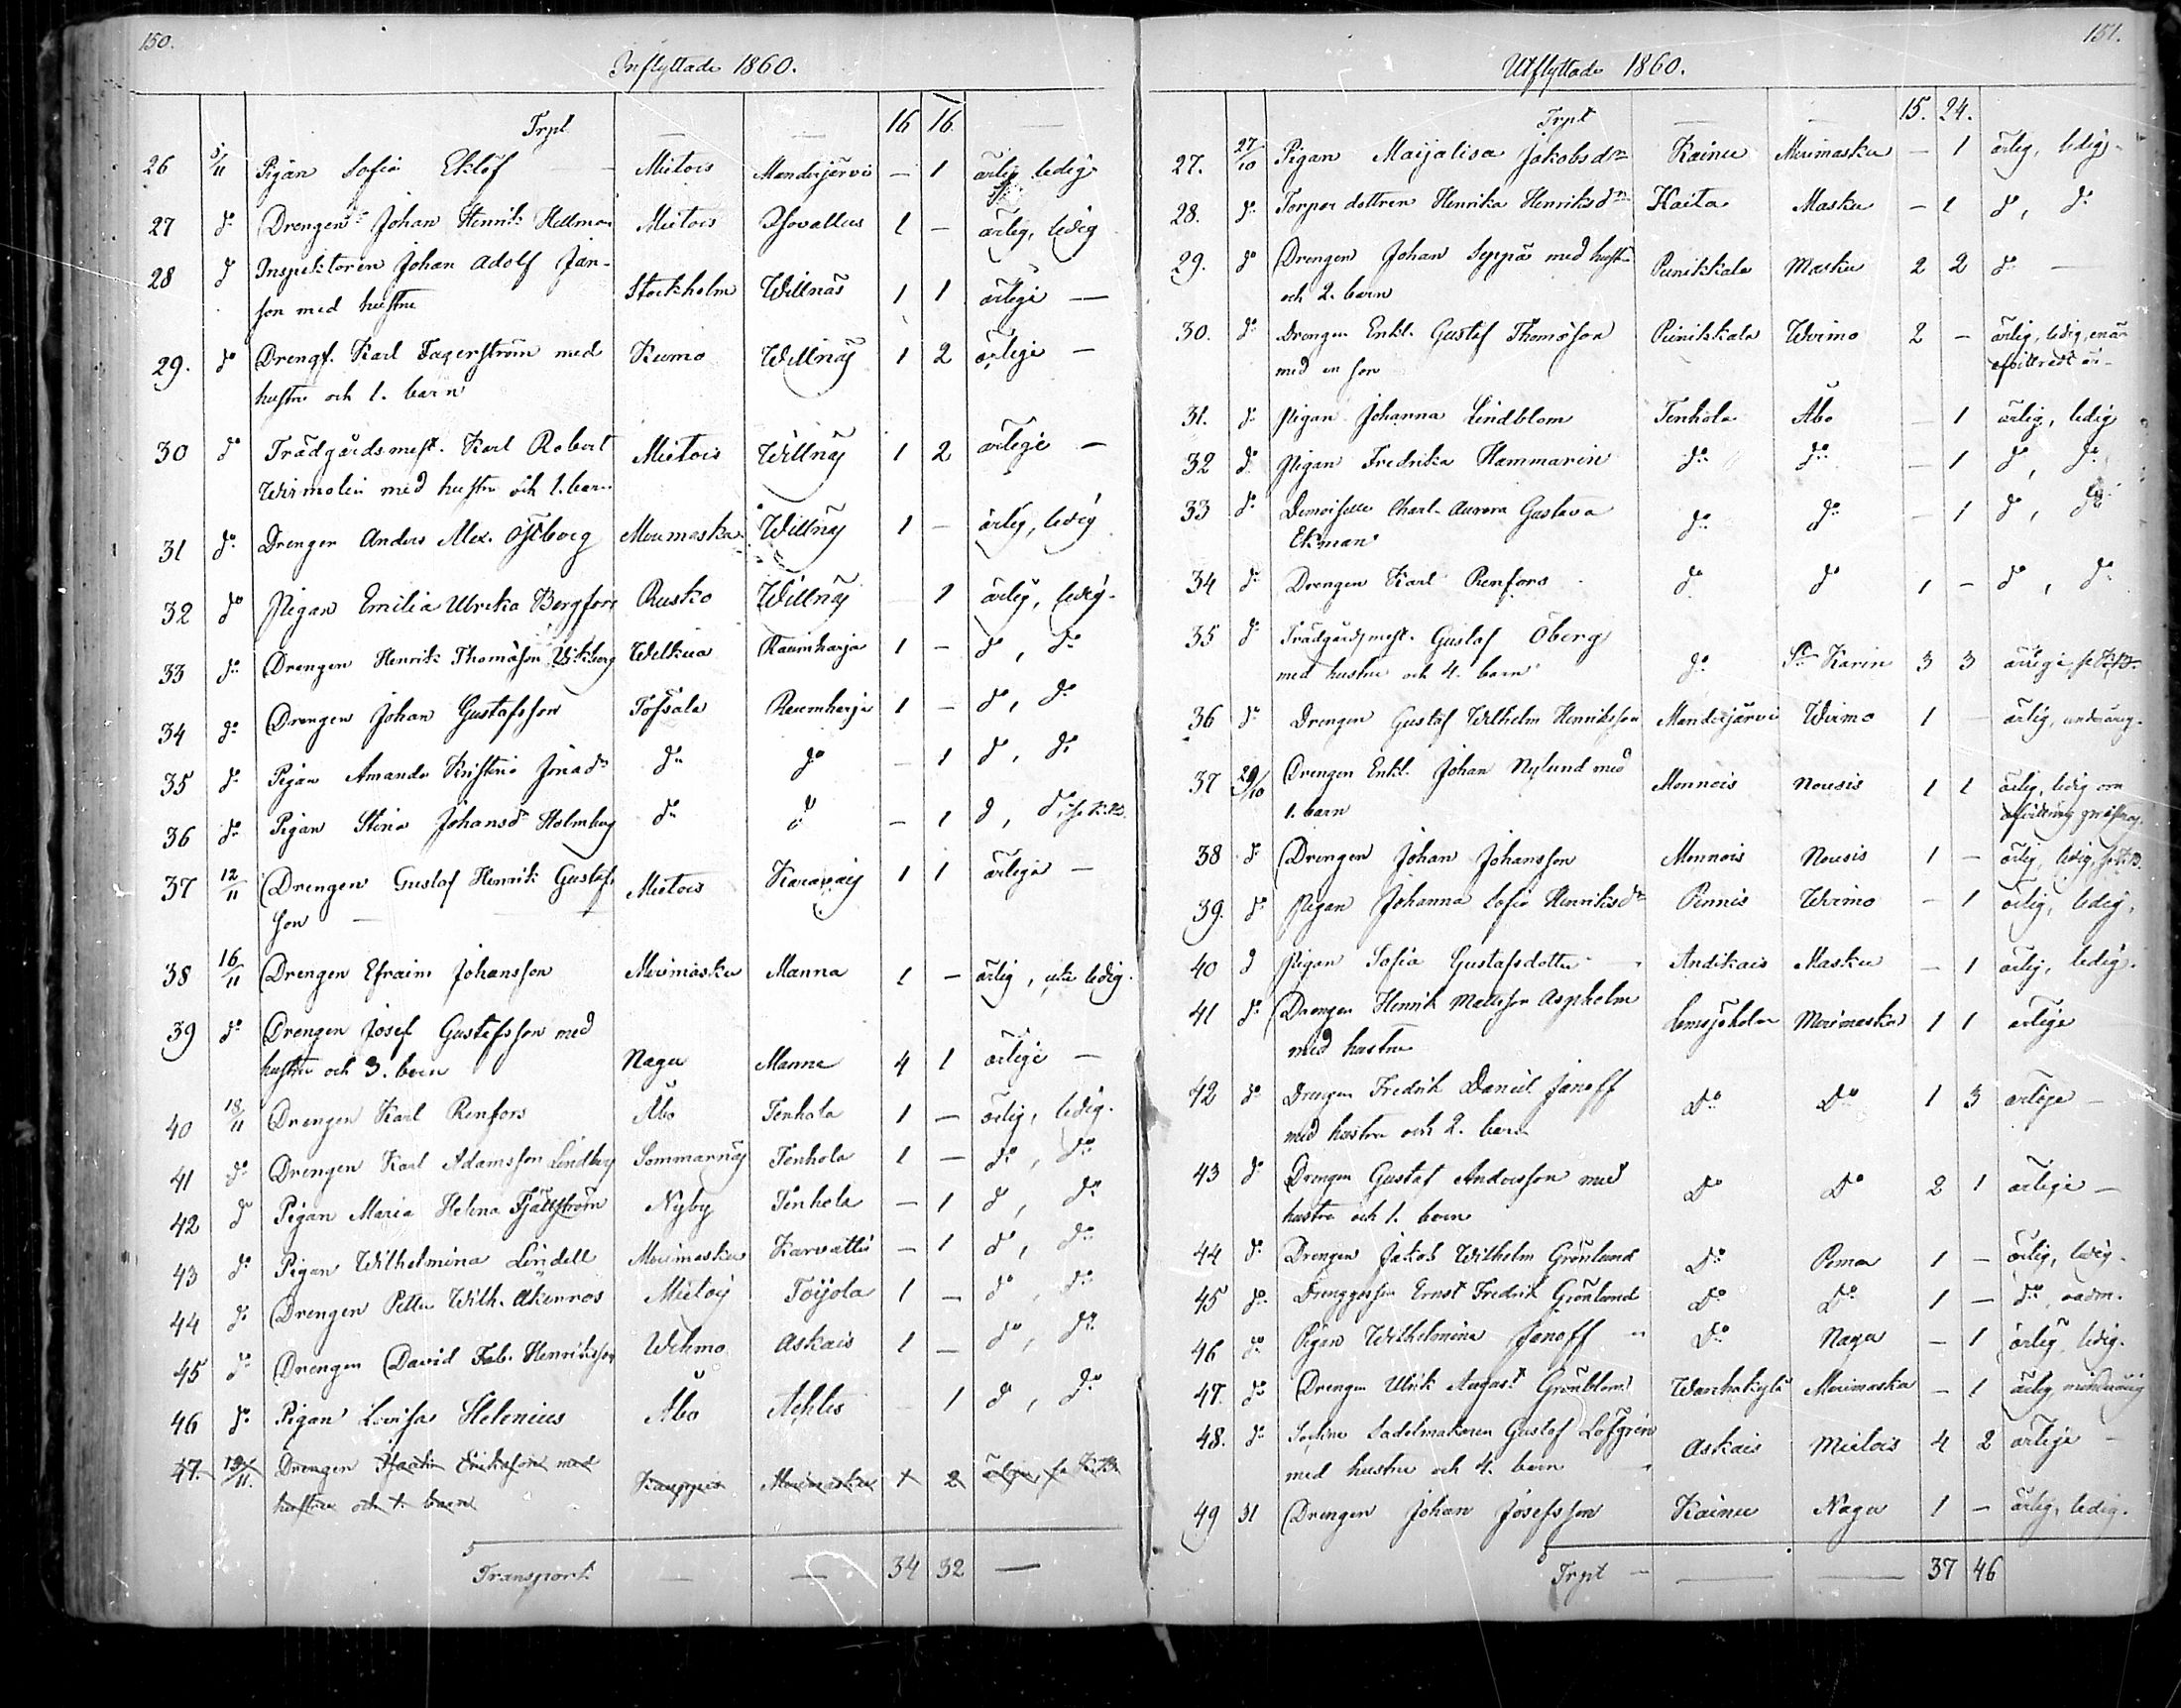 150.
Inflyttade 1860.
Trpt — — 16 16. —
26 5/11 Pigan Sofia Eklöf — Mietois Mandisjärvi — 1 ärlig ledig
27 do Drengen Johan Henrik Hellman Mietois 1 — ärlig, ledig
28 d Inspektoren Johan Adolf Jan-
son med hustru Stockholm Willnäs 1 1 ärliga —
29. do Drengf. Karl Fagerström med Kumo Willnäs 1 2 ärliga —
hustru och 1. barn
30 d Trädgårdsmest. Karl Robert Mietois Willnäs 1 2 ärliga —
Wirmolin med hustru och 1. barn
31 do Drengen Anders Alex. Östberg Merimasku Willnäs 1 — ärlig, ledig
32 do Pigan Emilia Ulrika Bergfors Rusko Willnäs 1 ärlig, ledig.
33 do Drengen Henrik Thomasson Wikberg Welkua Raumharja 1 — do, do
34 do Drengen Johan Gustafsson Töfsala Raumharja 1 — do, do
35 do Pigan Amanda Kristina do do — 1 d, do
36 do Pigan Stina Johansdr Holmberg do d — 1 d, do
37 12/11 Drengen Gustaf Henrik Gustaf- Mietois 1 1 ärliga —
son —
38 16/11 Drengen Efraim Johansson Merimasku Manna 1 — ärlig, icke ledig.
39 do Drengen Josef Gustafsson med
hustru och 3. barn Nagu Manna 4 1 ärliga —
40 18/11 Drengen Karl Renfors Åbo Tenhola 1 — ärlig, ledig.
41 do Drengen Karl Adamsson Lindberg Sommarnäs Tenhola 1 — do, do
42 d Pigan Maria Helena Fjällström Nyby Tenhola — 1 d, do
43 do Pigan Wilhelmina Lindell Merimasku Karvatti — 1 d, do
44 do Drengen Petter Wilh. Åkerros Mietois Toijola 1 — do, do
45 do Drengen David Fab. Henriksson Wehmo Askais 1 — do, do
46 do Pigan Lovisa Helenius Åbo Ahtis — 1 d, do
47. 19/11. Drengen Isaak Eriksson med Kauppis Merimasku 1 2
hustru och 1. barn
Transport — — 34 32 —
151.
Utflyttade 1860.
Trpt — — 15. 24.
27. 27/10 Pigan Maijalisa Jakobsdr Kainu Merimasku — 1 ärlig, ledig.
28. do Torpar dottren Henrika Henriksdr Kaita Masku — 1 d, do
29. do Drengen Johan Seppä med hustru Punikkala Masku 2 2 do —
och 2. barn
30. do Drengen Enkl. Gustaf Thomasson Punikkala Wirmo 2 — ärlig, ledig, enär
med en son afvittradt är
31. do Pigan Johanna Lindblom Tenhola Åbo — 1 ärlig, ledig
32 do Pigan Fredrika Hammarin do do — 1 d, do
33 do Demoiselle Charl. Aurora Gustava do do — 1 d, do
Ekman
34 do Drengen Karl Renfors do do 1 — do, do
35 do Trädgårdsmest. Gustaf Öberg
med hustru och 4. barn do St. Karin 3 3 ärliga
36 do Drengen Gustaf Wilhelm Henriksson Mandisjärvi Wirmo 1 — ärlig,
37 29/10 Drengen Enkl. Johan Nylund med Monnois Nousis 1 1 ärlig, ledig om
1. barn afvittring
38 do Drengen Johan Johansson Monnois Nousis 1 — ärlig, ledig,
39. do Pigan Johanna Sofia Henriksdr Pennis Wirmo — 1 ärlig, ledig,
40 d Pigan Sofia Gustafsdotter Andikais Masku — 1 ärlig, ledig.
41 do Drengen Henrik Mattsson Aspholm Lemsjöholm Merimasku 1 1 ärliga
med hustru
42 do Drengen Fredrik Daniel Janoff Do Do 1 3 ärliga —
med hustru och 2. barn
43 do Drengen Gustaf Andersson med Do Do 2 1 ärliga —
hustru och 1. barn
44 do Drengen Jakob Wilhelm Grönlund Do Pemar 1 — ärlig, ledig.
45 do Drenggossen Ernst Fredrik Grönlund Do Do 1 — do, oadm.
46 do Pigan Wilhelmina Janoff Do Nagu — 1 ärlig, ledig.
47. do Drengen Ulrik August Grönblom Wanhakylä Merimasku — 1 ärlig, minderårig
48. do Sockne Sadelmakaren Gustaf Löfgren Askais Mietois 4 2 ärliga —
med hustru och 4. barn
49 31 Drengen Johan Josefsson Kainu Nagu 1 — ärlig, ledig.
Trpt — — — 37 46